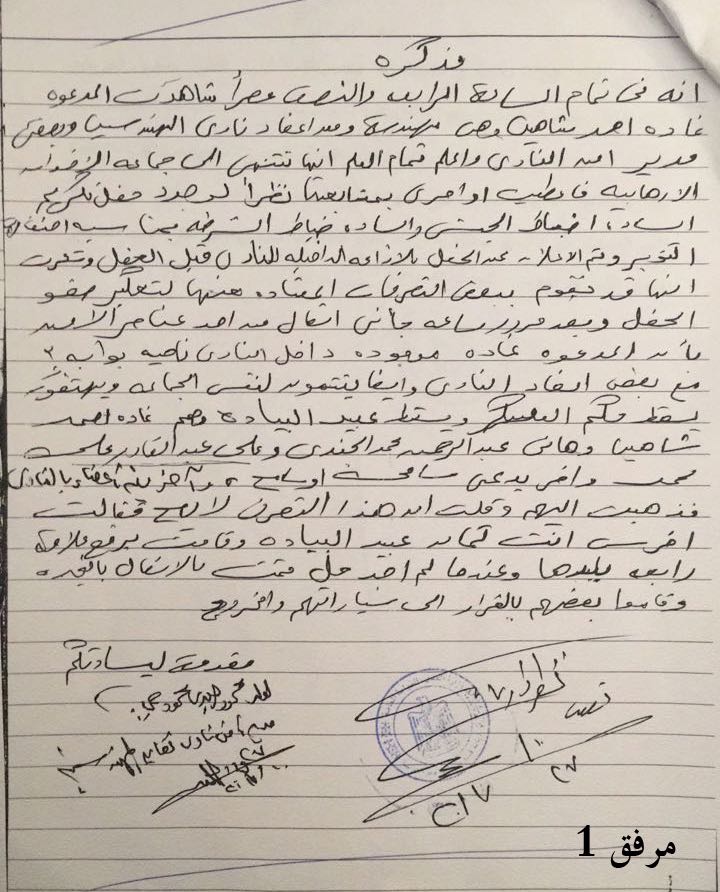 مذكره
انه فى تمام الساعة الرابعه والنصف عصراً شاهدت المدعوه
غاده احمد شاهين وهى مهندسة ومن اعضاء نادى المهندسين وبصفتى
مدير امن النادى واعلم تمام العلم انها تنتمى الى جماعه الإخوان
الارهابيه فاعطيت اوامرى بمتابعتها نظراً لوجود حفل تكريم
السادة ضباط الجيش والساده ضباط الشرطه بمناسبه احتفالات
اكتوبر وتم الاعلان عن الحفل بالاذاعه الداخليه للنادى قبل الحفل وشعرت
انها قد تقوم ببعض التصرفات المعتاده منها لتعكير صفو
الحفل وبعد مرور ساعه جائنى اتصال من احد عناصر الأمن
بأن المدعوه غاده موجوده داخل النادى ناحيه بوابه ٢
مع بعض اعضاء النادى وايضا ينتمون لنفس الجماعه ويهتفون
يسقط حكم العسكر ويسقط عبيد البياده وهم غاده احمد
شاهين وهانى عبدالرحمن محمد الجندى وعلى عبدالقادر على
محمد واخر يدعى سامح وآخرين أعضاء بالنادى
فذهبت اليهم وقلت ان هذا التصرف لا يصح فقالت
اخرس انت كمان عبيد البياده وقامت برفع علامة
رابعه بيدها وعندما لم اجد حل قمت بالاتصال بالنجده
وقاموا بعضهم بالفرار الى سياراتهم والخروج
مقدمة لسيادتكم
لواء محمود
مدير أمن نادى المهندسين
٢٧
١٠
٢٠١٧
مرفق 1